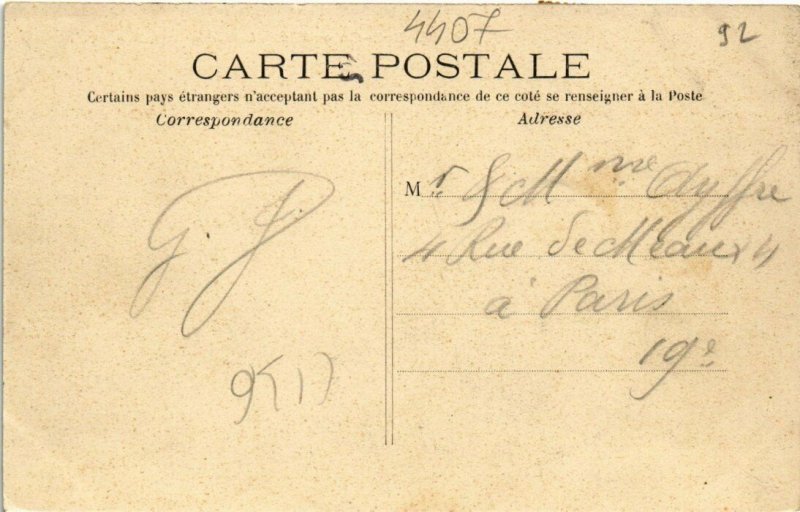 4407
92
CARTE POSTALE
Certains pays étrangers n'acceptant pas la correspondance de ce coté se renseigner à la Poste
Correspondance
Adresse
Mr & Mme Ayffre
4 Rue de Meaux 4
à Paris
19e
G. J.